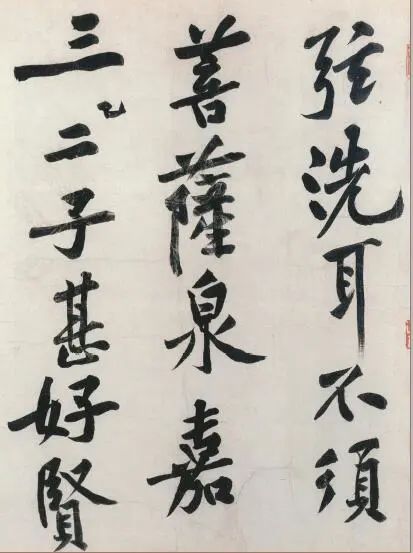 弦洗耳不須
菩薩泉嘉
三二子甚好賢